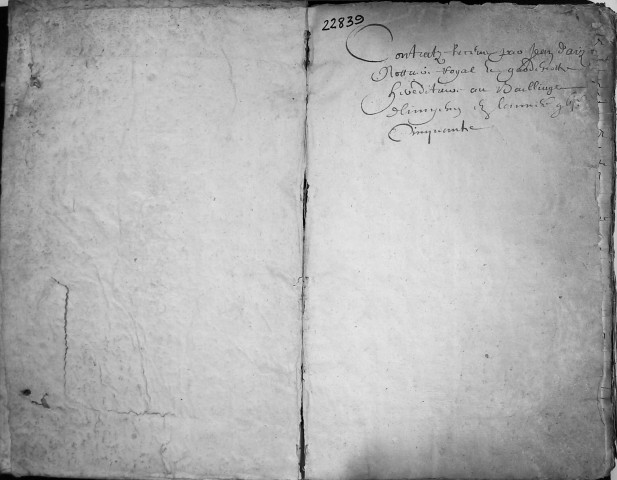 22839
Contratz receuz par Jean Dart
Nottaire Royal et garde notte
hereditaire au Bailliage
en l'annee
Cinquante